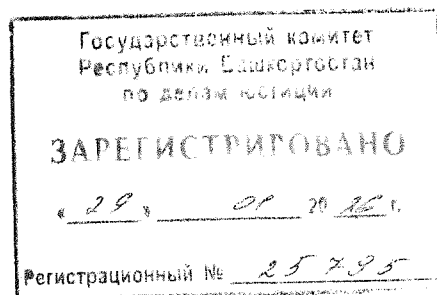 Государственный комитет
Республики Башкортостан
по делам юстиции
ЗАРЕГИСТРИРОВАНО
« 29 » 01 20 16 г.
Регистрационный № 25795